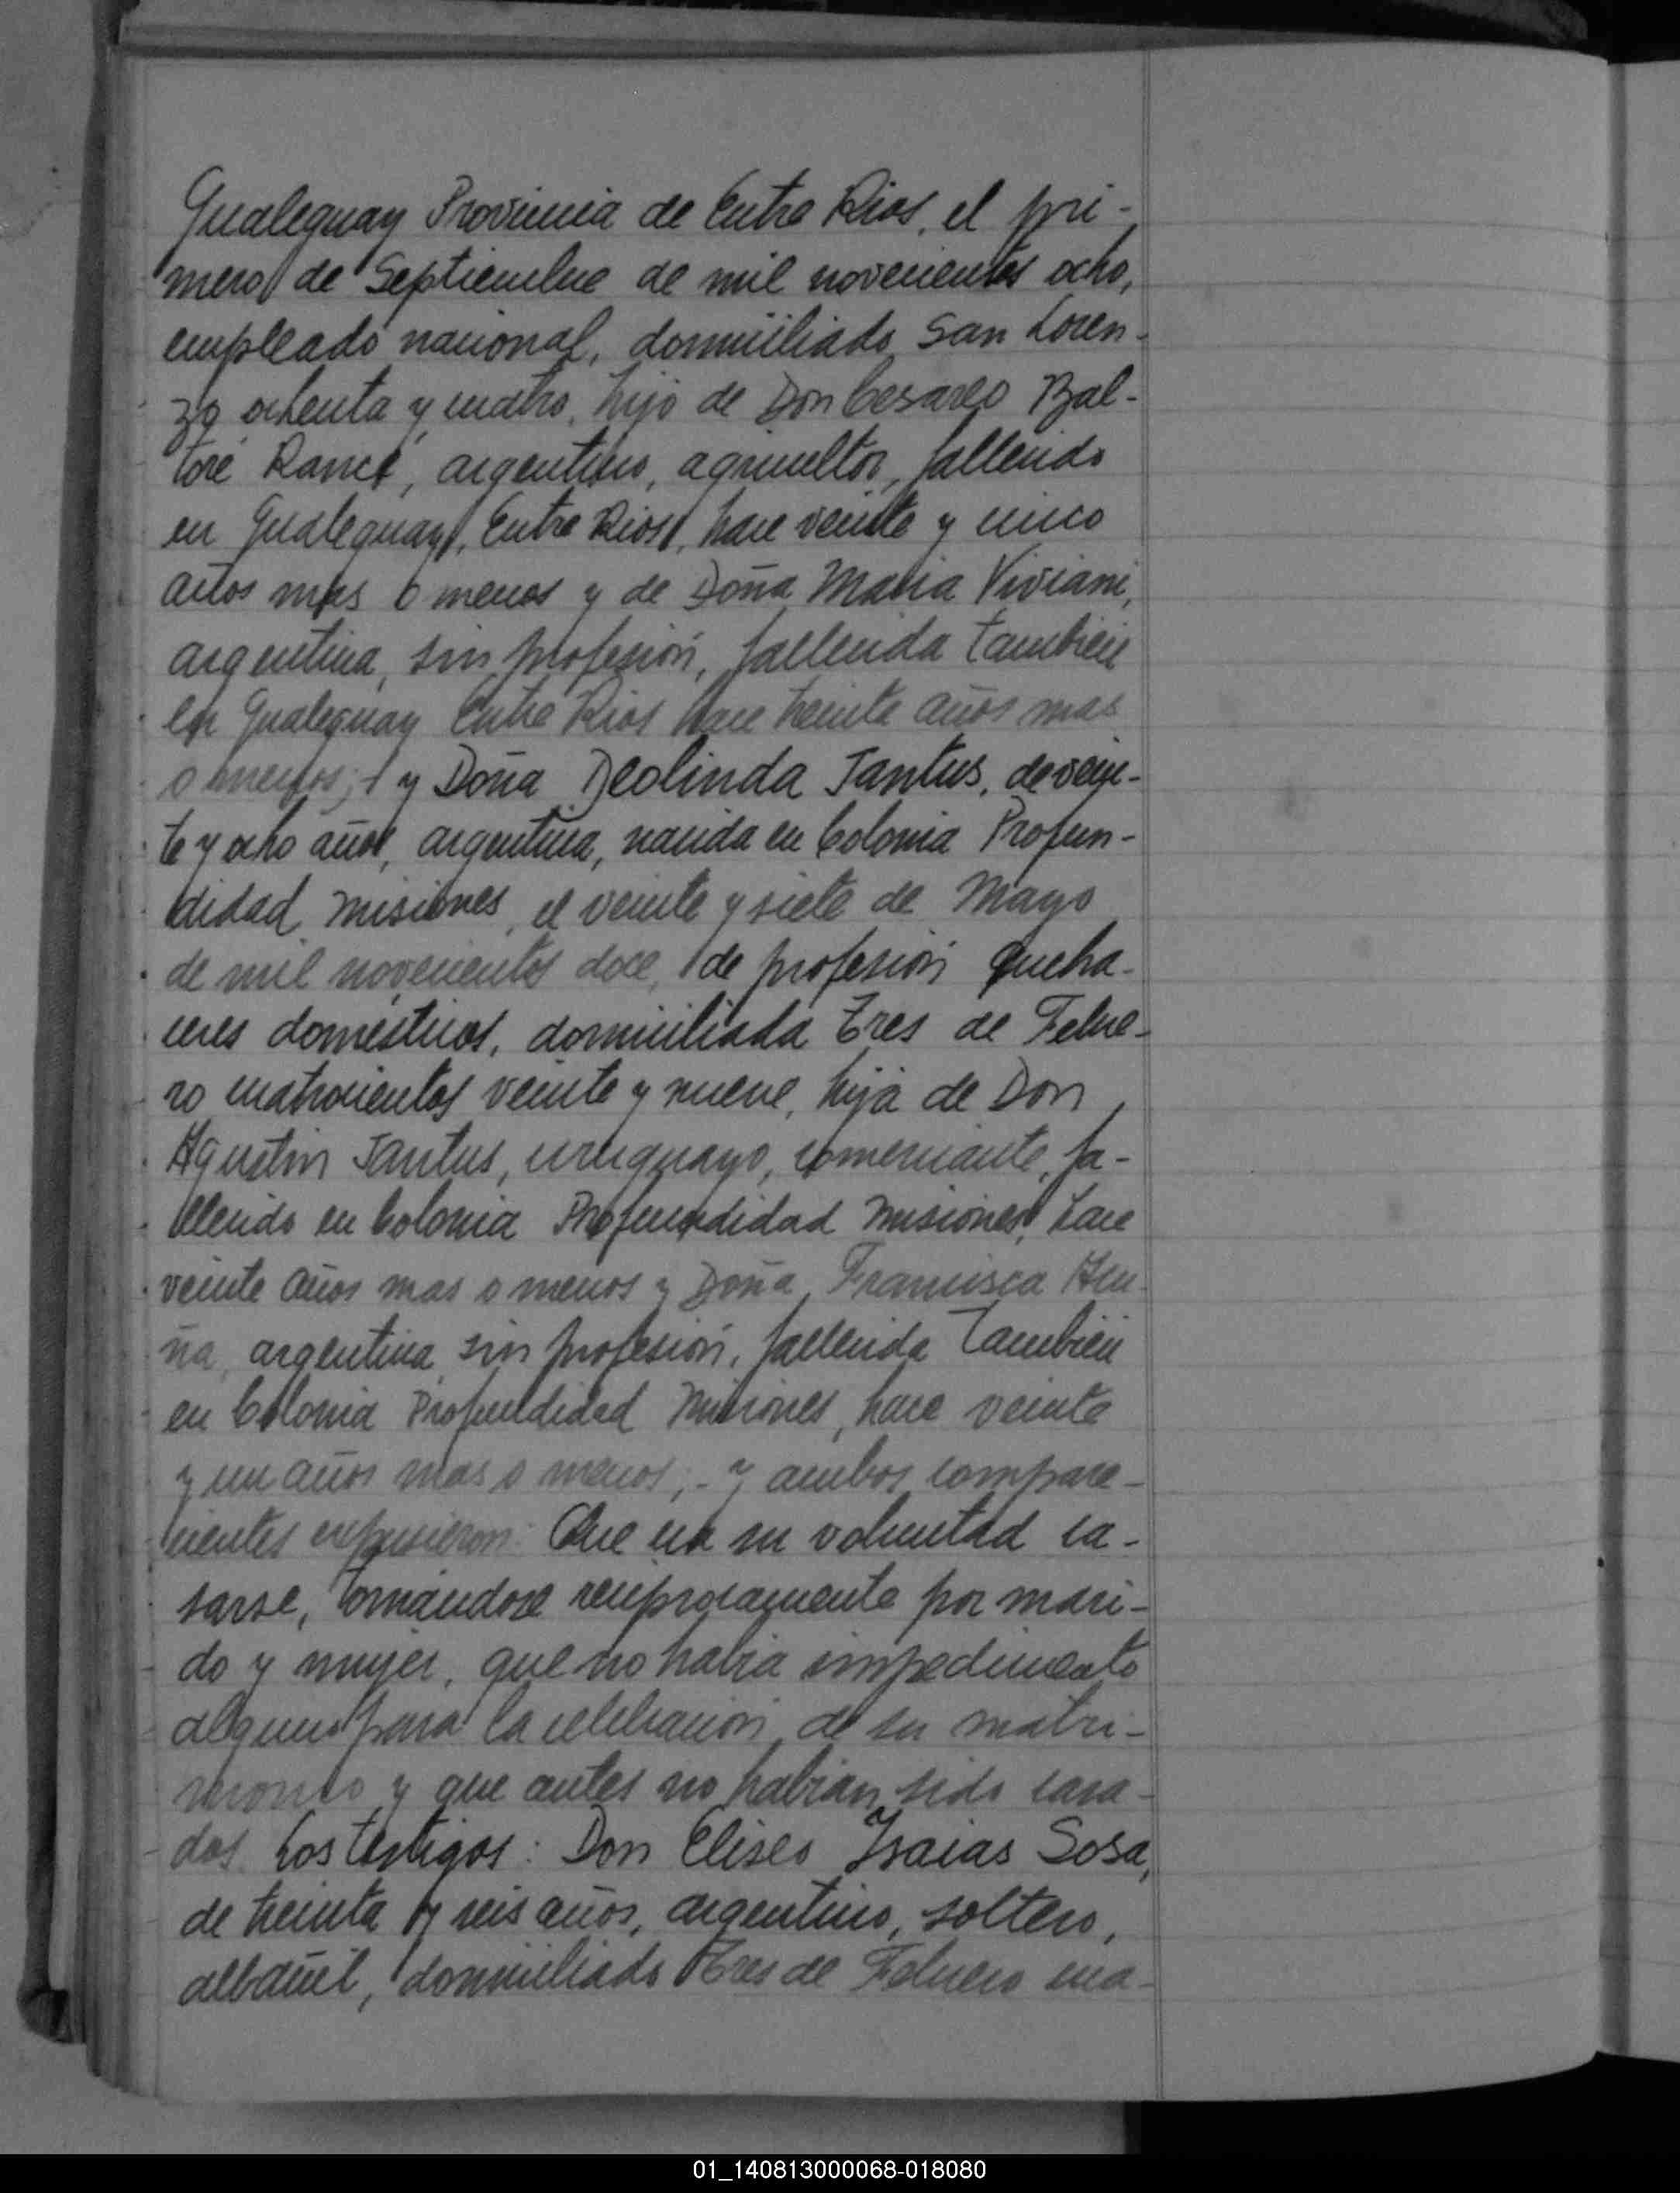 Gualeguay Provincia de Entre Rios, el pri-
mero de Septiembre de mil novecientos ocho,
empleado nacional, domiciliado San Loren-
zo ochenta y cuatro, hijo de Don Cesareo Bal-
toré argentino, agricultor, fallecido
en Gualeguay, Entre Rios, hace veinte y cinco
años mas ó menos y de Doña Maria Viviani,
argentina, sin profesión, fallecida tambien
en Gualeguay Entre Rios hace treinta años mas
o menos; y Doña Deolinda Santus, de vein-
te y ocho años, argentina, nacida en Colonia Profun-
didad Misiones, el veinte y siete de Mayo
de mil novecientos doce, de profesión queha-
ceres domésticos, domiciliada Tres de Febre-
ro cuatrocientos veinte y nueve, hija de Don
Agustin Santus, uruguayo, comerciante, fa-
llecido en Colonia Profundidad Misiones, hace
veinte años mas o menos y Doña Francisca Acu-
ña, argentina, sin profesión, fallecida tambien
en Colonia Profundidad Misiones, hace veinte
y un años mas o menos;- y ambos compare-
cientes expusieron: Que era su voluntad ca-
sarse, tomándose reciprocamente por mari-
do y mujer, que no habia impedimento
alguno para la celebración de su matri-
monio y que antes no habian sido casa-
dos. Los testigos: Don Eliseo Isaias Sosa,
de treinta y seis años, argentino, soltero,
albañil, domiciliado Tres de Febrero cua-
01_140813000068-018080